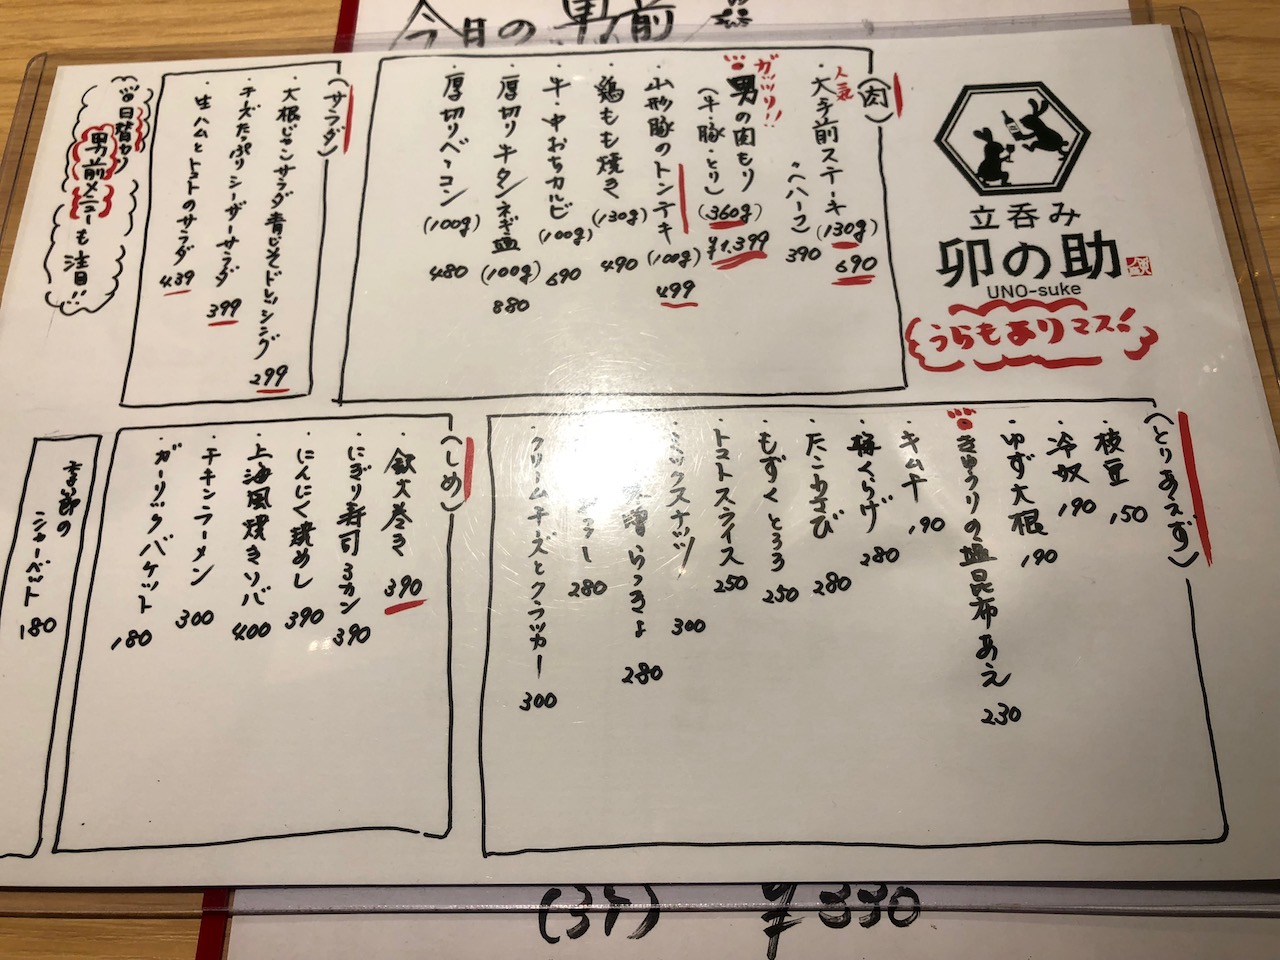 今日の男前
立呑み
卯の助
UNO-suke
うらもありマス!
(肉)
人気
・大手前ステーキ(130g) 690
〃(ハーフ) 390
ガッツリ!!
男の肉もり
(牛・豚・とり)(360g) ¥1,399
・山形豚のトンテキ(100g) 499
・鶏もも焼き(130g) 490
・牛・中おちカルビ(100g) 690
・厚切り牛タンネギ塩(100g) 880
・厚切りベーコン(100g) 480
(サラダ)
・大根じゃこサラダ青じそドレッシング 299
・チーズたっぷりシーザーサラダ 399
・生ハムとトマトのサラダ 439
日替わり
男前メニューも注目!!
(とりあえず)
・枝豆 150
・冷奴 190
・ゆず大根 190
きゅうりの塩昆布あえ 230
・キムチ 190
・梅くらげ 280
・たこわさび 280
・もずくとろろ 250
・トマトスライス 250
・ミックスナッツ 300
らっきょ 280
280
・クリームチーズとクラッカー 300
(しめ)
・鉄火巻き 390
・にぎり寿司3カン 390
・にんにく焼めし 390
・上海風焼きソバ 400
・チキンラーメン 300
・ガーリックバケット 180
季節の
シャーベット 180
¥330